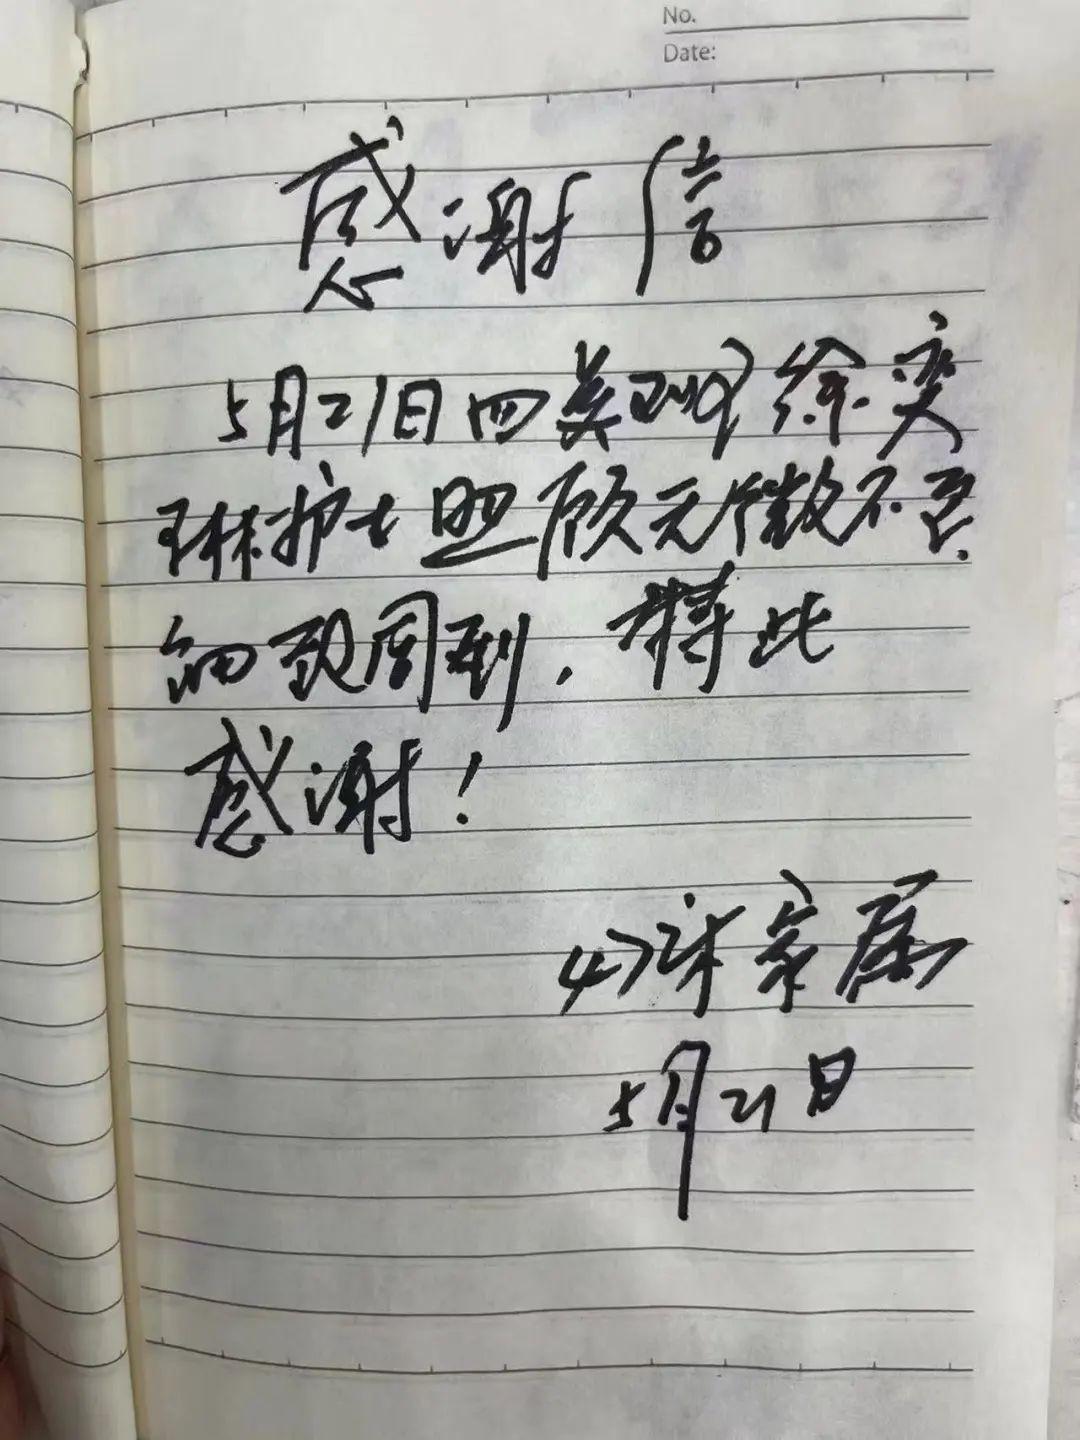 No.
Date:
感谢信
5月21日四美
琳护士照顾无微不至
细致周到，特此
感谢！
47床家属
5月21日